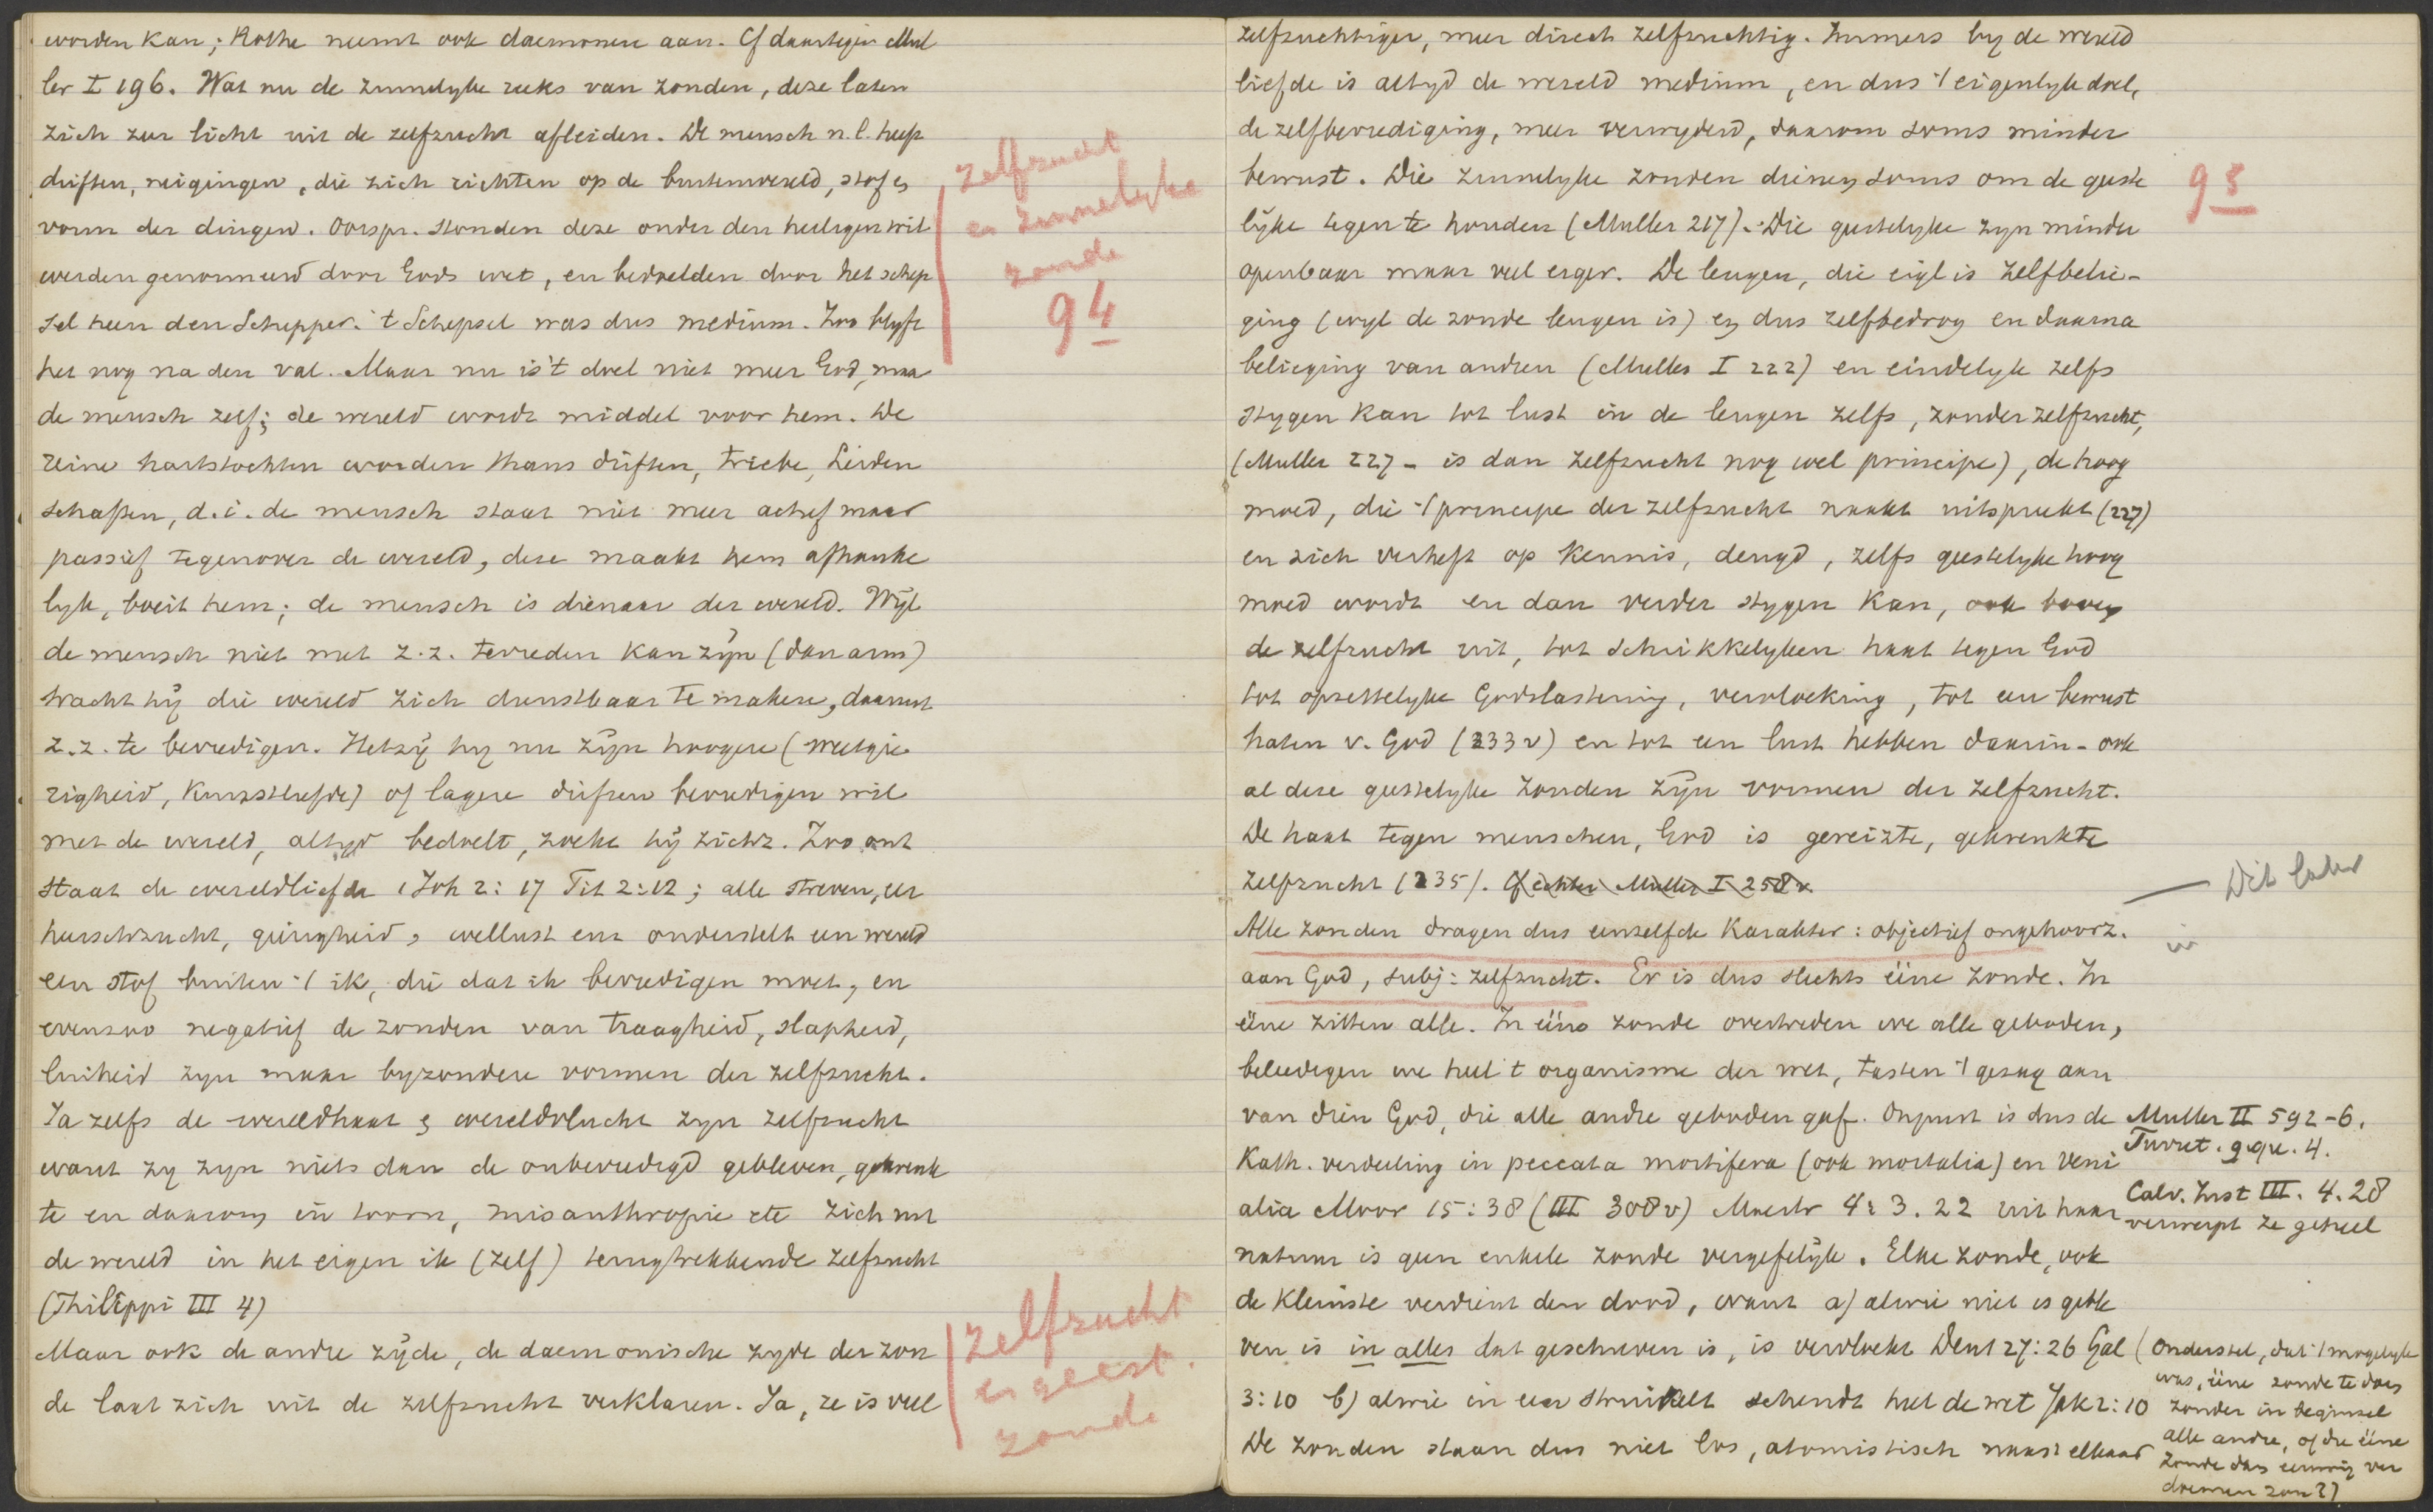 worden kan; Rothe neemt ook daemonen aan. Cf daartegen Mul
ler I 196. Wat nu de zinnelyke reeks van zonden, deze laten
zich zeer licht uit de zelfzucht afleiden. De mensch n.l. heeft
driften, neigingen, die zich richten op de buitenwereld, stof en
vorm der dingen. Oorspr. stonden deze onder den heiligen wil
werden genormeerd door Gods wet, en bedoelden door het schep
sel heen den Schepper. 't Schepsel was dus medium. Zoo blyft
het nog na den val. Maar nu is 't doel niet meer God, maa
de mensch zelf; de wereld wordt middel voor hem. De
reine hartstochten worden thans driften, Triebe, Leiden
schaften, d.i. de mensch staat niet meer actief maar
passief tegenover de wereld, deze maakt hem afhanke
lyk, boeit hem; de mensch is dienaar der wereld. Wyl
de mensch niet met z.z. tevreden kan zyn (dan arm)
tracht hy die wereld zich dienstbaar te maken, daarmet
z.z. te bevredigen. Hetzy hy nu zyn hoogere (weetgie
righeid, kunstliefde) of lagere driften bevredigen wil
met de wereld, altyd bedoelt, zoekt hy zichz. Zoo ont
staat de wereldliefde 1 Joh 2:17 Tit 2:12; alle streven, eer
heerschzucht, gierigheid, wellust enz onderstelt een wereld
een stof buiten 't ik, die dat ik bevredigen moet, en
evenzoo negatief de zonden van traagheid, slapheid,
luiheid zyn maar byzondere vormen der zelfzucht.
Ja zelfs de wereldhaat en wereldvlucht zyn zelfzucht
want zy zyn niets dan de onbevredigd gebleven, gekrenk
te en daarom in toorn, misanthropie etc zich uit
de wereld in het eigen ik (zelf) terugtrekkende zelfzucht
(Philippi III 4)
Maar ook de andre zyde, de daemonische zyde der zon
de laat zich uit de zelfzucht verklaren. Ja, ze is veel
zelfzucht
en zinnelyke
zonde
94
zelfzucht
en geest.
zonde
zelfzuchtiger, meer direct zelfzuchtig. Immers by de wereld
liefde is altyd de wereld medium, en dus 't eigenlyke doel,
de zelfbevrediging, meer verwyderd, daarom soms minder
bewust. Die zinnelyke zonden dienen soms om de geeste
lyke tegen te houden (Muller 217). Die geestelyke zyn minder
openbaar maar veel erger. De leugen, die eigl is zelfbelie-
ging (wyl de zonde leugen is) en dus zelfbedrog en daarna
belieging van andren (Muller I 222) en eindelyk zelfs
stygen kan tot lust in de leugen zelfs, zonder zelfzucht,
(Muller 227 - is dan zelfzucht nog wel principe), de hoog
moed, die 't principe der zelfzucht naakt uitspreekt (227)
en zich verheft op kennis, deugd, zelfs geestelyke hoog
moed wordt en dan verder stygen kan, ook boven
de zelfzucht uit, tot schrikkelyken haat tegen God
tot opzettelyke Godslastering, vervloeking, tot een bewust
haten v. God (233 v) en tot een lust hebben daarin - ook
al deze geestelyke zonden zyn vormen der zelfzucht.
De haat tegen menschen, God is gereizte, gekrenkte
zelfzucht (235). Cf echter Muller I 258 v.
Alle zonden dragen dus eenzelfde karakter: objectief ongehoorz.
aan God, subj: zelfzucht. Er is dus slechts ééne zonde. In
ééne zitten alle. In ééne zonde overtreden we alle geboden,
beleedigen we heel 't organisme der wet, tasten 't gezag aan
van dien God, die alle andre geboden gaf. Onjuist is dus de
Kath. verdeeling in peccata mortifera (ook mortalia) en veni
alia Moor 15:38 (III 308 v) Maestr 4:3.22 uit haar
natuur is geen enkele zonde vergefelyk. Elke zonde, ook
de kleinste verdient den dood, want a) alwie niet is geble
ven is in alles dat geschreven is, is vervloekt Deut 27:26 Gal
3:10 b) alwie in een struikelt schendt heel de wet Jak 2:10
De zonden staan dus niet los, atomistisch naast elkaar
95
Dit later
in
Muller II 592-6.
Turret. 9 qu. 4.
Calv. Inst III. 4. 28
verwerpt ze geheel
(Onderstel, dat 't mogelyk
was, ééne zonde te doen
zonder in beginsel
alle andre, of die ééne
zonde dan eeuwig ver
doemen zou?)